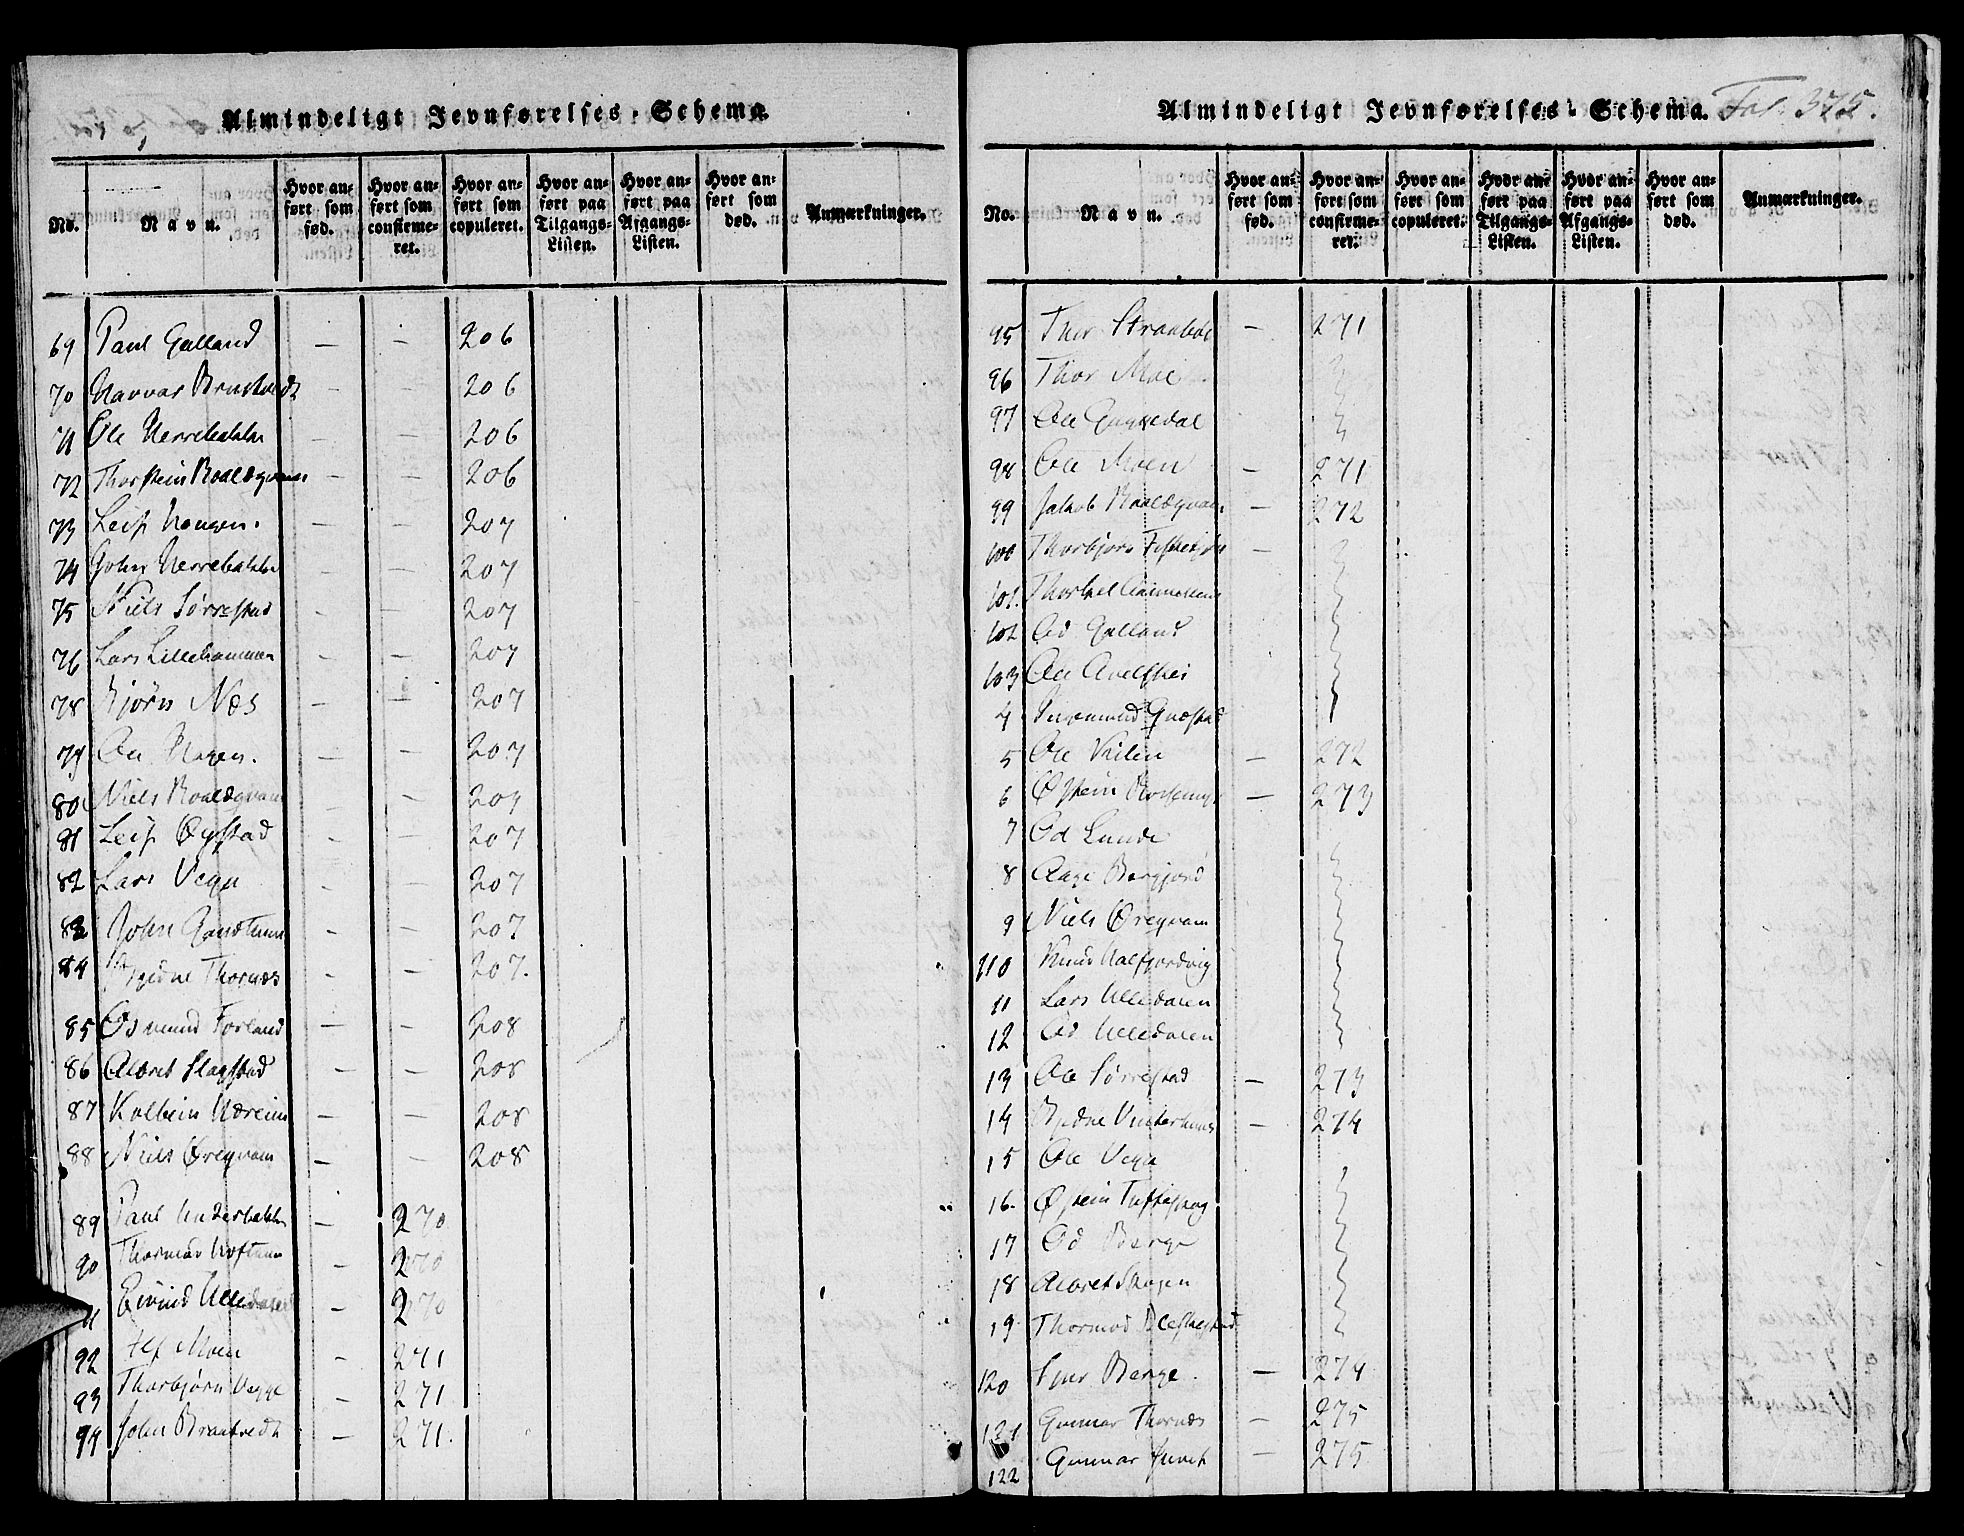 Almindeligt Jevnførelses-Schema.
No. | Navn. | Hvor anført som fød. | Hvor anført som confirmeret. | Hvor anført som copuleret. | Hvor anført paa Tilgangs-Listen. | Hvor anført paa Afgangs-Listen. | Hvor anført som død. | Anmærkninger.
69 Paul Galland — — 206
70 Havvar — — 206
71 Ole Herrebakke — — 206
72 Thorstein Roaldqvam — — 206
73 Leif Haugen. — — 207
74 John Herrebakke — — 207
75 Niels Sørrestad — — 207
76 Lars Lillehammer — — 207
78 Bjørn Næs — — 207
79 Ole Hagen. — — 207
80 Niels Roaldqvam — 207
81 Leif Øystad — — 207
82 Lars Vega — — 207
83 John — — 207
84 Thornæs — — 207.
85 Osmund Forland — — 208
86 Alvret Slagstad — — 208
87 Kolbein Næreim — — 208
88 Niels Øregvam — — 208
89 Paul Underbakke — 270
90 Thormod — 270
91 Eivind — 270
92 Alf Moen — 271
93 Thorbjørn Vegge — 271
94 John — 271.
Almindeligt Jevnførelses-Schema. Fol. 375.
No. | Navn. | Hvor anført som fød. | Hvor anført som confirmeret. | Hvor anført som copuleret. | Hvor anført paa Tilgangs-Listen. | Hvor anført paa Afgangs-Listen. | Hvor anført som død. | Anmærkninger.
95 Thor Straabøe — 271
96 Thor Moe
97 Ole
98 Ole Moen — 271
99 Jakob Roaldqvam — 272
100 Thorbjørn —
101. Thorkel
102 Od Galland
103 Ole
4
5 Ole — 272
6 Østein — 273
7 Od Lunde
8 Aage
9 Niels Øregvam
110 Knud Halfjordvig
11 Lars Ulledalen
12 Od Ulledalen
13 Ole Sørrestad — 273
14 Vinterhuus — 274
15 Ole Vega
16. Østein
17 Od Berge
18 Alvret Skogen
19 Thormod
120 Berge. — 274
121 Gunnar Thornæs — 275
122 Gunnar — 275